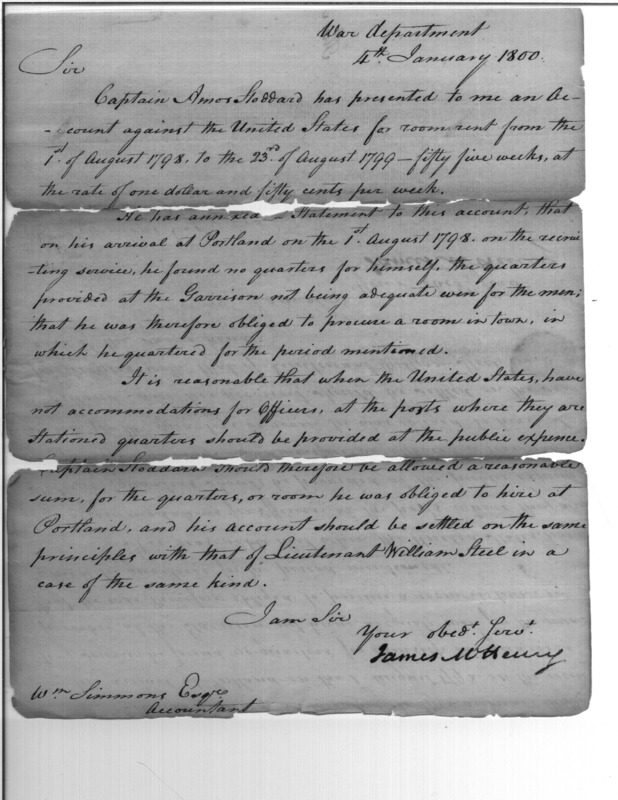 War department
4th. January 1800.
Sir
Captain Amos Stoddard has presented to me an Ac-
-count against the United States for room rent from the
1st. of August 1798, to the 23rd. of August 1799 — fifty five weeks, at
the rate of one dollar and fifty cents per week.
He has annexed a Statement to this account, that
on his arrival at Portland on the 1st. August 1798. on the recrui-
-ting service, he found no quarters for himself, the quarters
provided at the Garrison not being adequate even for the men;
that he was therefore obliged to procure a room in town, in
which he quartered for the period mentioned.
It is reasonable that when the United States, have
not accommodations for Officers, at the posts where they are
stationed quarters should be provided at the public expence.
Captain Stoddard should therefore be allowed a reasonable
sum, for the quarters, or room he was obliged to hire at
Portland, and his account should be settled on the same
principles with that of Lieutenant William Steel in a
case of the same kind.
I am Sir
Your obedt. Servt.
James McHenry
Wm Simmons Esqre
Accountant